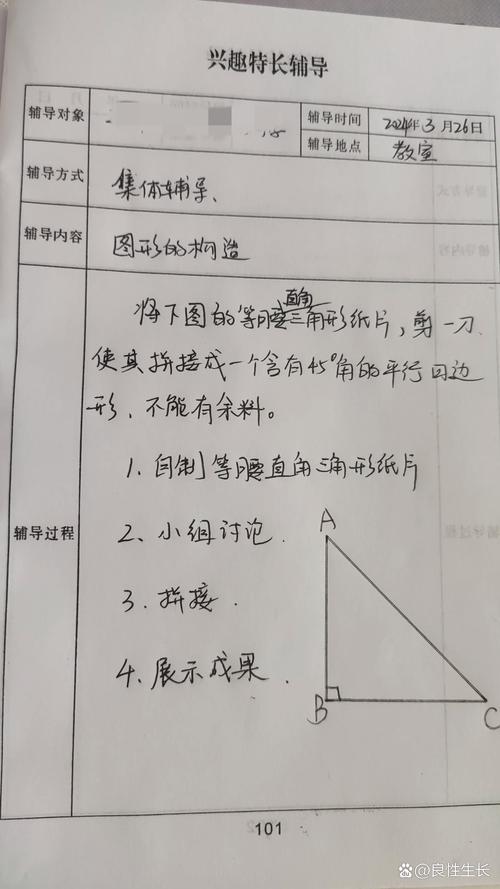 兴趣特长辅导
辅导对象
辅导时间 2024年3月26日
辅导地点 教室
辅导方式 集体辅导、
辅导内容 图形的构造
直角
将下图的等腰三角形纸片，剪一刀
使其拼接成一个含有45°角的平行四边
形，不能有余料。
1. 自制等腰直角三角形纸片
辅导过程
2、小组讨论.
3. 拼接.
4. 展示成果.
A
B
C
101
@良性生长